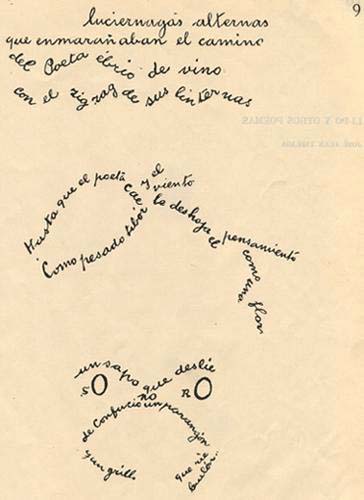 9
luciernagas alternas
que enmarañaban el camino
del Poeta ebrio de vino
con el zigzag de sus linternas
LI-PO Y OTROS POEMAS
JOSÉ JUAN TABLADA
Hasta que el poeta cae
Como pesado tibor
y el viento
le deshoja el pensamiento
como una flor
un sapo que deslie
SO no RO
de Confucio un parangón
y un grillo
que rie
burlon..